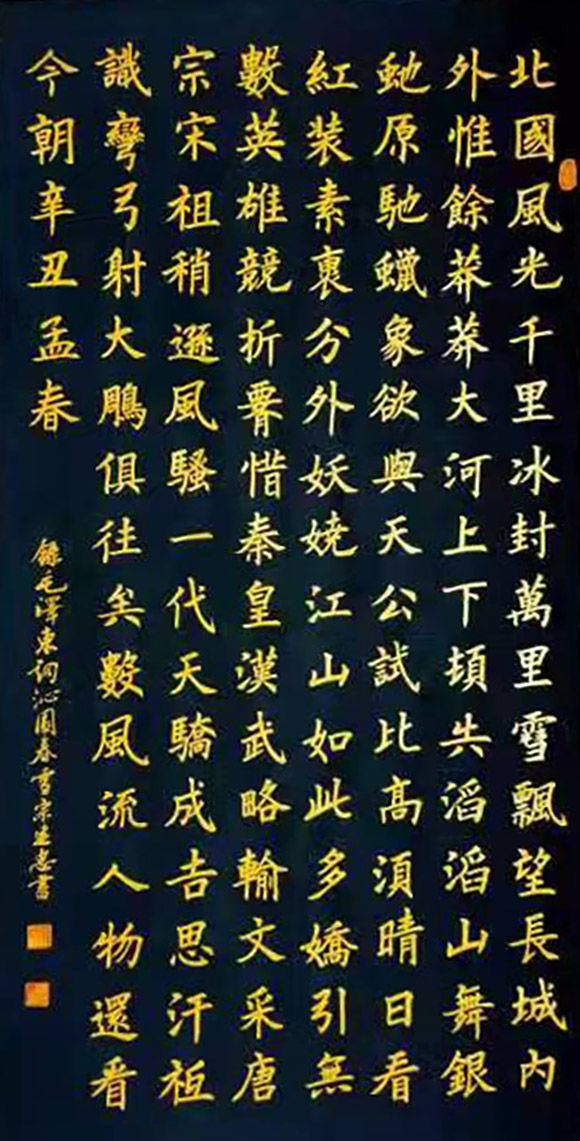 北國風光千里冰封萬里雪飄望長城内
外惟餘莽莽大河上下頓失滔滔山舞銀
虵原馳蠟象欲與天公試比高須晴日看
紅装素裹分外妖娆江山如此多嬌引無
數英雄競折腰惜秦皇漢武略輸文采唐
宗宋祖稍遜風騷一代天驕成吉思汗衹
識彎弓射大鵰俱往矣數風流人物還看
今朝辛丑孟春
錄毛澤東詞沁園春雪宗書